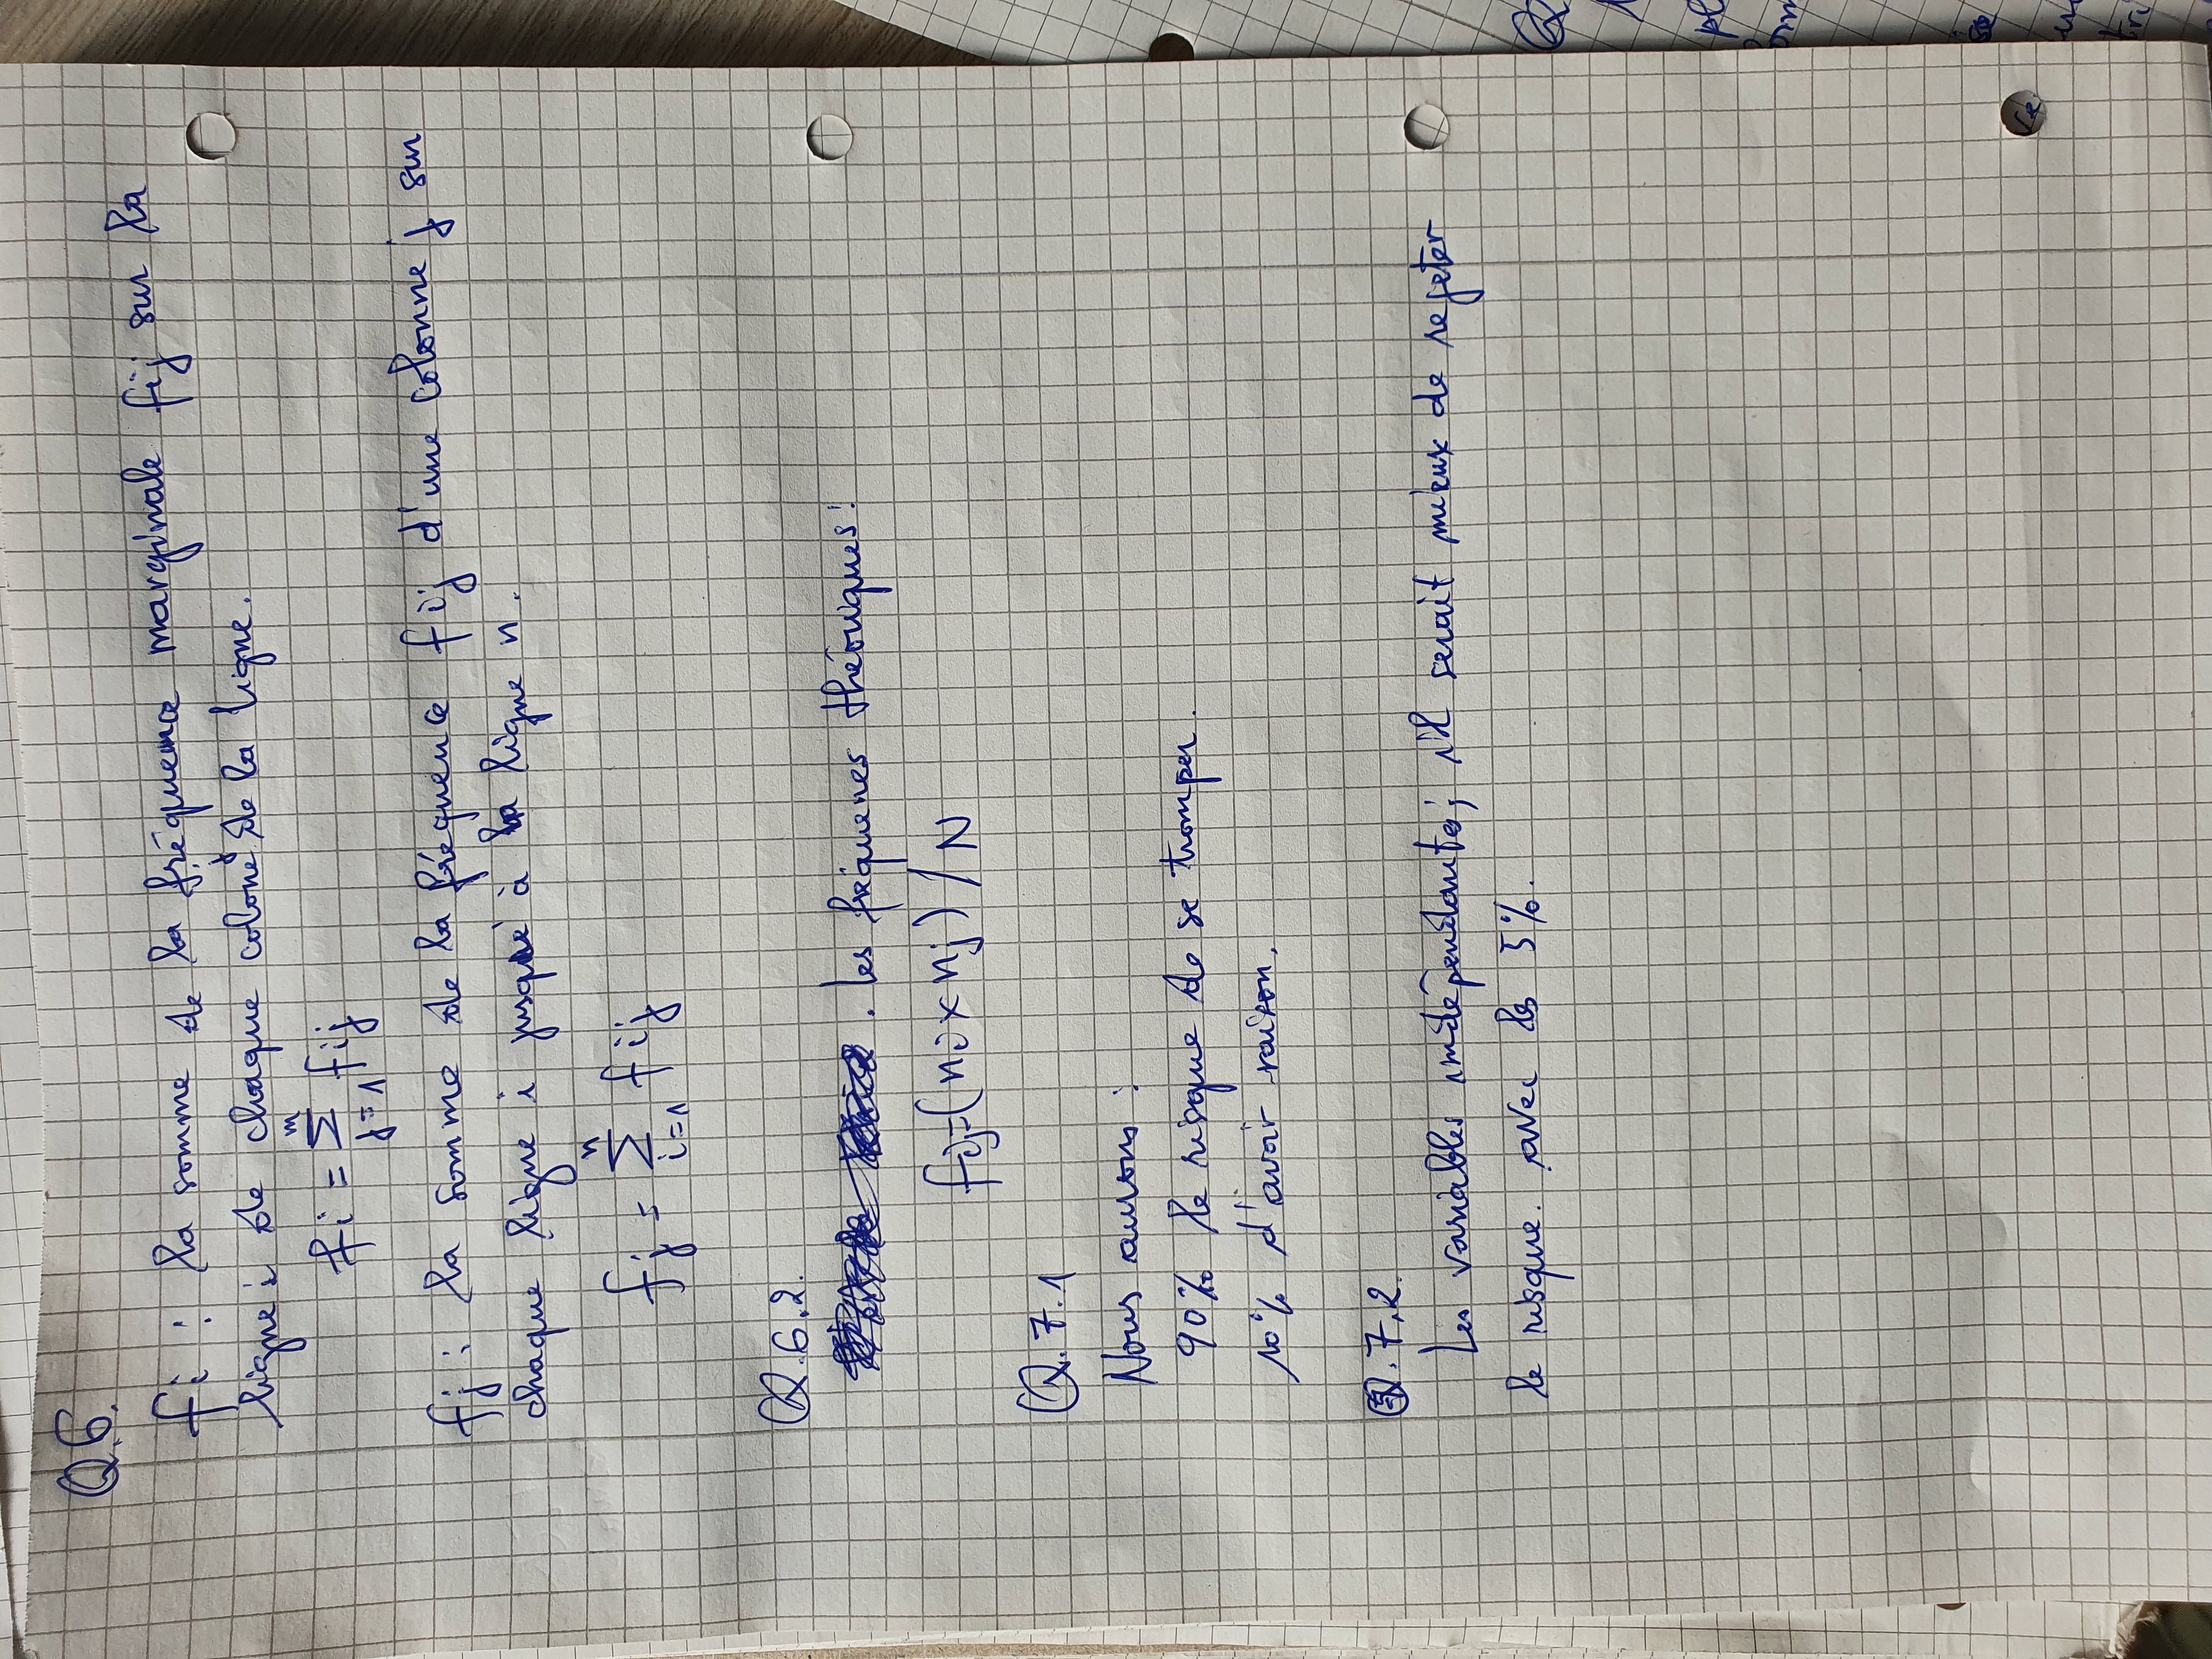 Q.6.
fi : la somme de la fréquence marginale fij sur la
ligne i de chaque colone j de la ligne.
fi = m Σ j=1 fij
fj : la somme de la fréquence fij d'une colonne j sur
chaque ligne i jusqué à la ligne n.
fj = n Σ i=1 fij
Q.6.2.
. les fréquenes théoriques :
fij=(ni x nj) / N
Q.7.1
Nous aurons :
90% le risque de se tromper.
10% d'avoir raison.
Q.7.2.
Les variables indépendante; il serait mieux de rejeter
le risque. avec les 5%.
Q
pl
se
le
tri